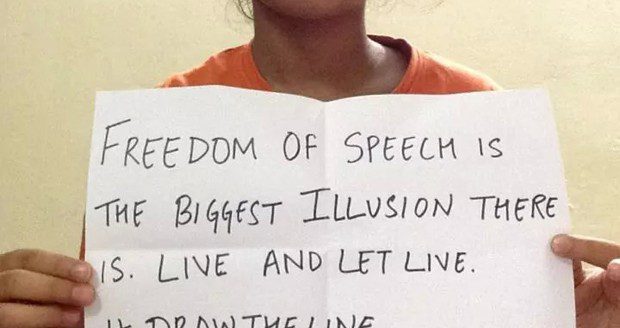 FREEDOM OF SPEECH IS
THE BIGGEST ILLUSION THERE
IS. LIVE AND LET LIVE.
# DRAWTHELINE